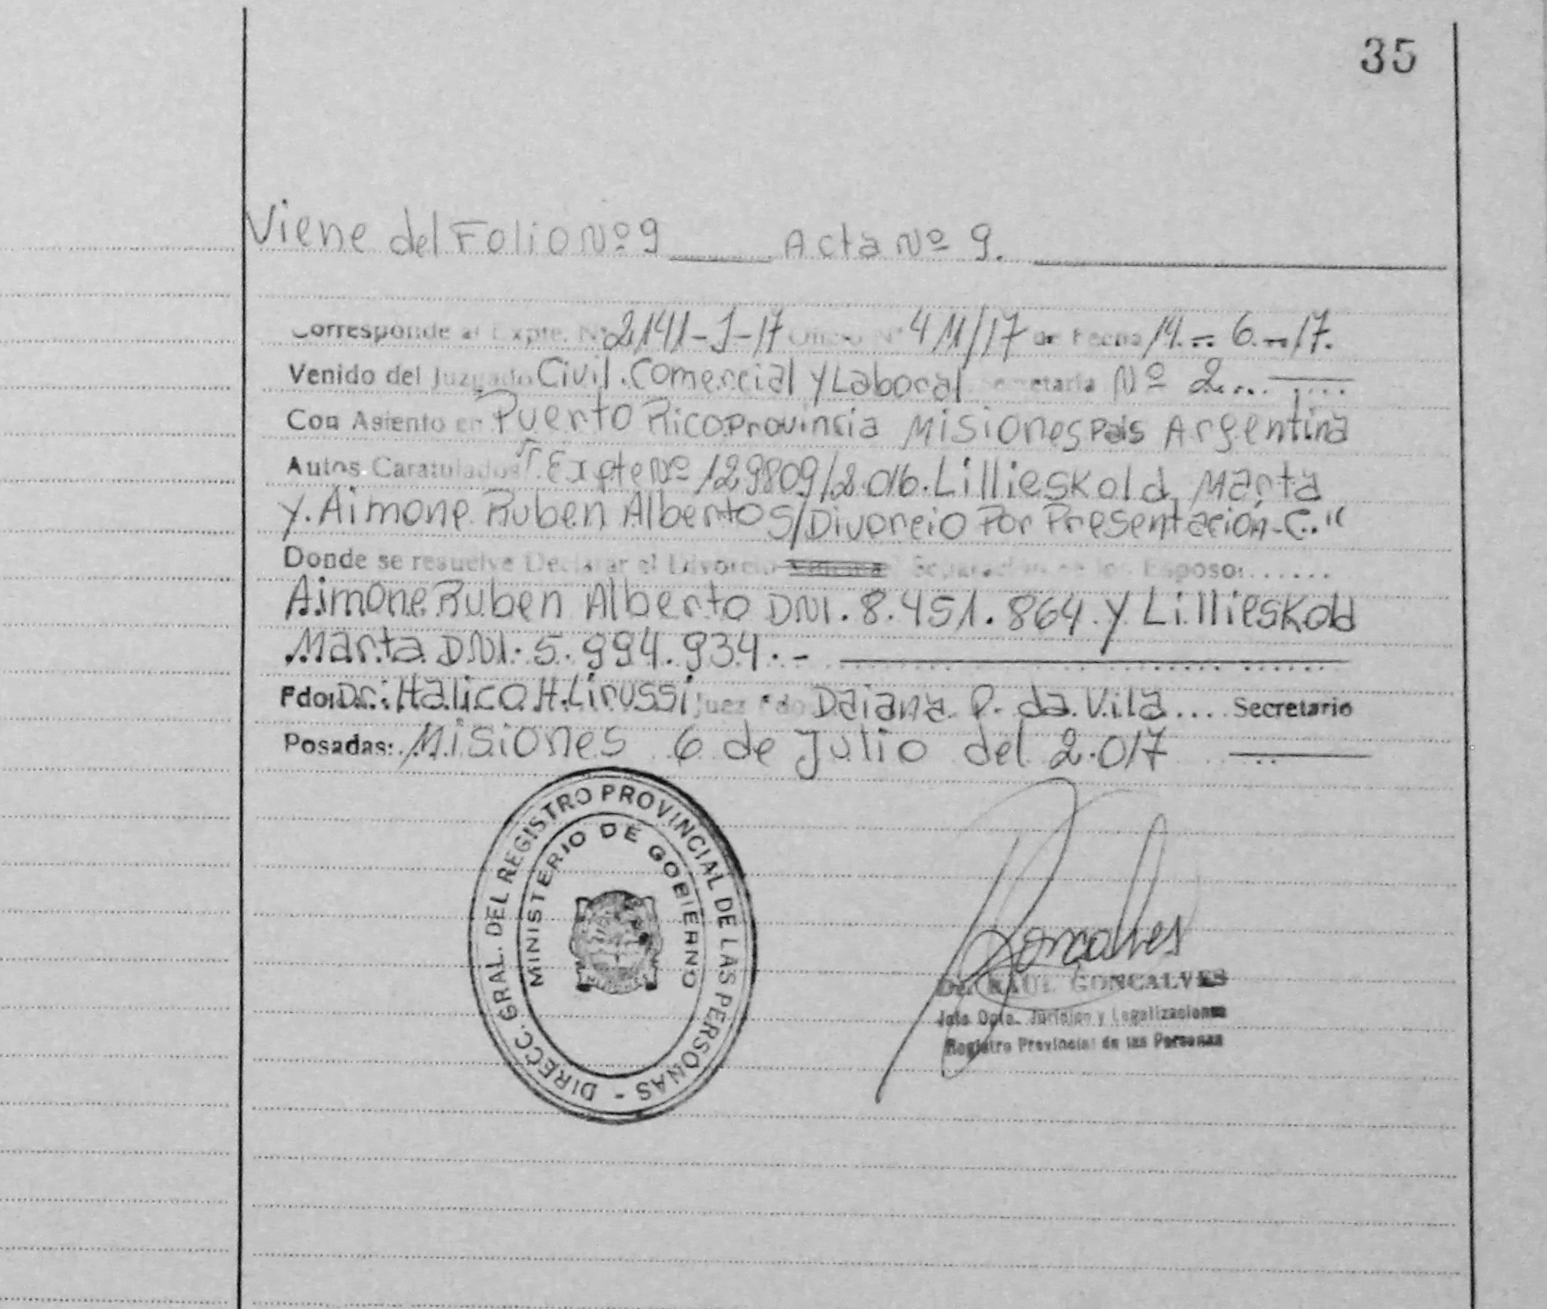 35
Viene del Folio Nº 9 ____ Acta Nº 9.
Corresponde al Expte. Nº 2141-J-17 Oficio Nº 411/17 de Fecha 14.-6.-17.
Venido del Juzgado Civil. Comercial y Laboral Secretaria Nº 2...
Con Asiento en Puerto Rico Provinsia Misiones País Argentina
Autos Caratulados " Expte Nº 129809/2.016. Lillieskold, Marta
y. Aimone Ruben Alberto S/Divorcio Por Presentación-C."
Donde se resuelve Declarar el Divorcio / Separación de los Esposos......
Aimone Ruben Alberto DNI. 8.451.864 y Lillieskold
Marta DNI. 5.994.934.-
Fdo: Dr.: Halico H. Lirussi Juez Fdo Daiana P. da Vila.... Secretario
Posadas: Misiones 6 de Julio del 2.017
DIRECC. GRAL. DEL REGISTRO PROVINCIAL DE LAS PERSONAS -
MINISTERIO DE GOBIERNO
Goncalves
Dr. RAUL GONCALVES
Jefe Dpto. Jurídico y Legalizaciones
Registro Provincial de las Personas